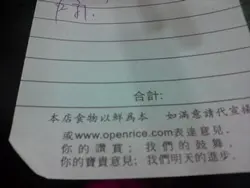 合計:
本店食物以鮮為本 如滿意請代宣傳
或www.openrice.com表達意見.
你的讚賞; 我們的鼓舞.
你的寶貴意見; 我們明天的進步.